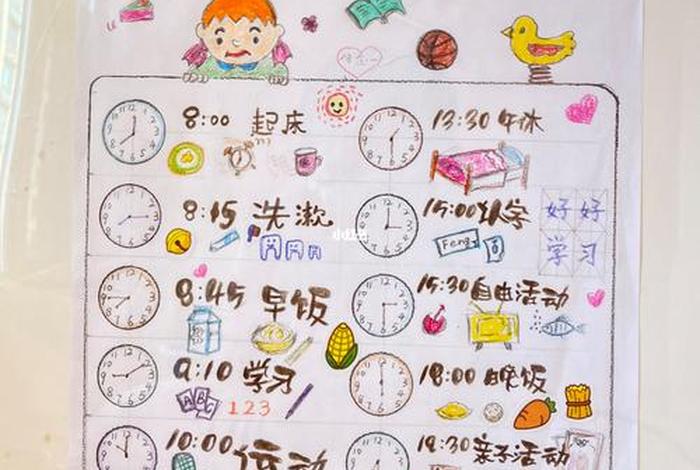 8:00 起床
8:15 洗漱
8:45 早饭
9:10 学习
ABC
123
10:00 运动
13:30 午休
15:00 认字
Feng
好好
学习
15:30 自由活动
18:00 晚饭
18:30 亲子活动